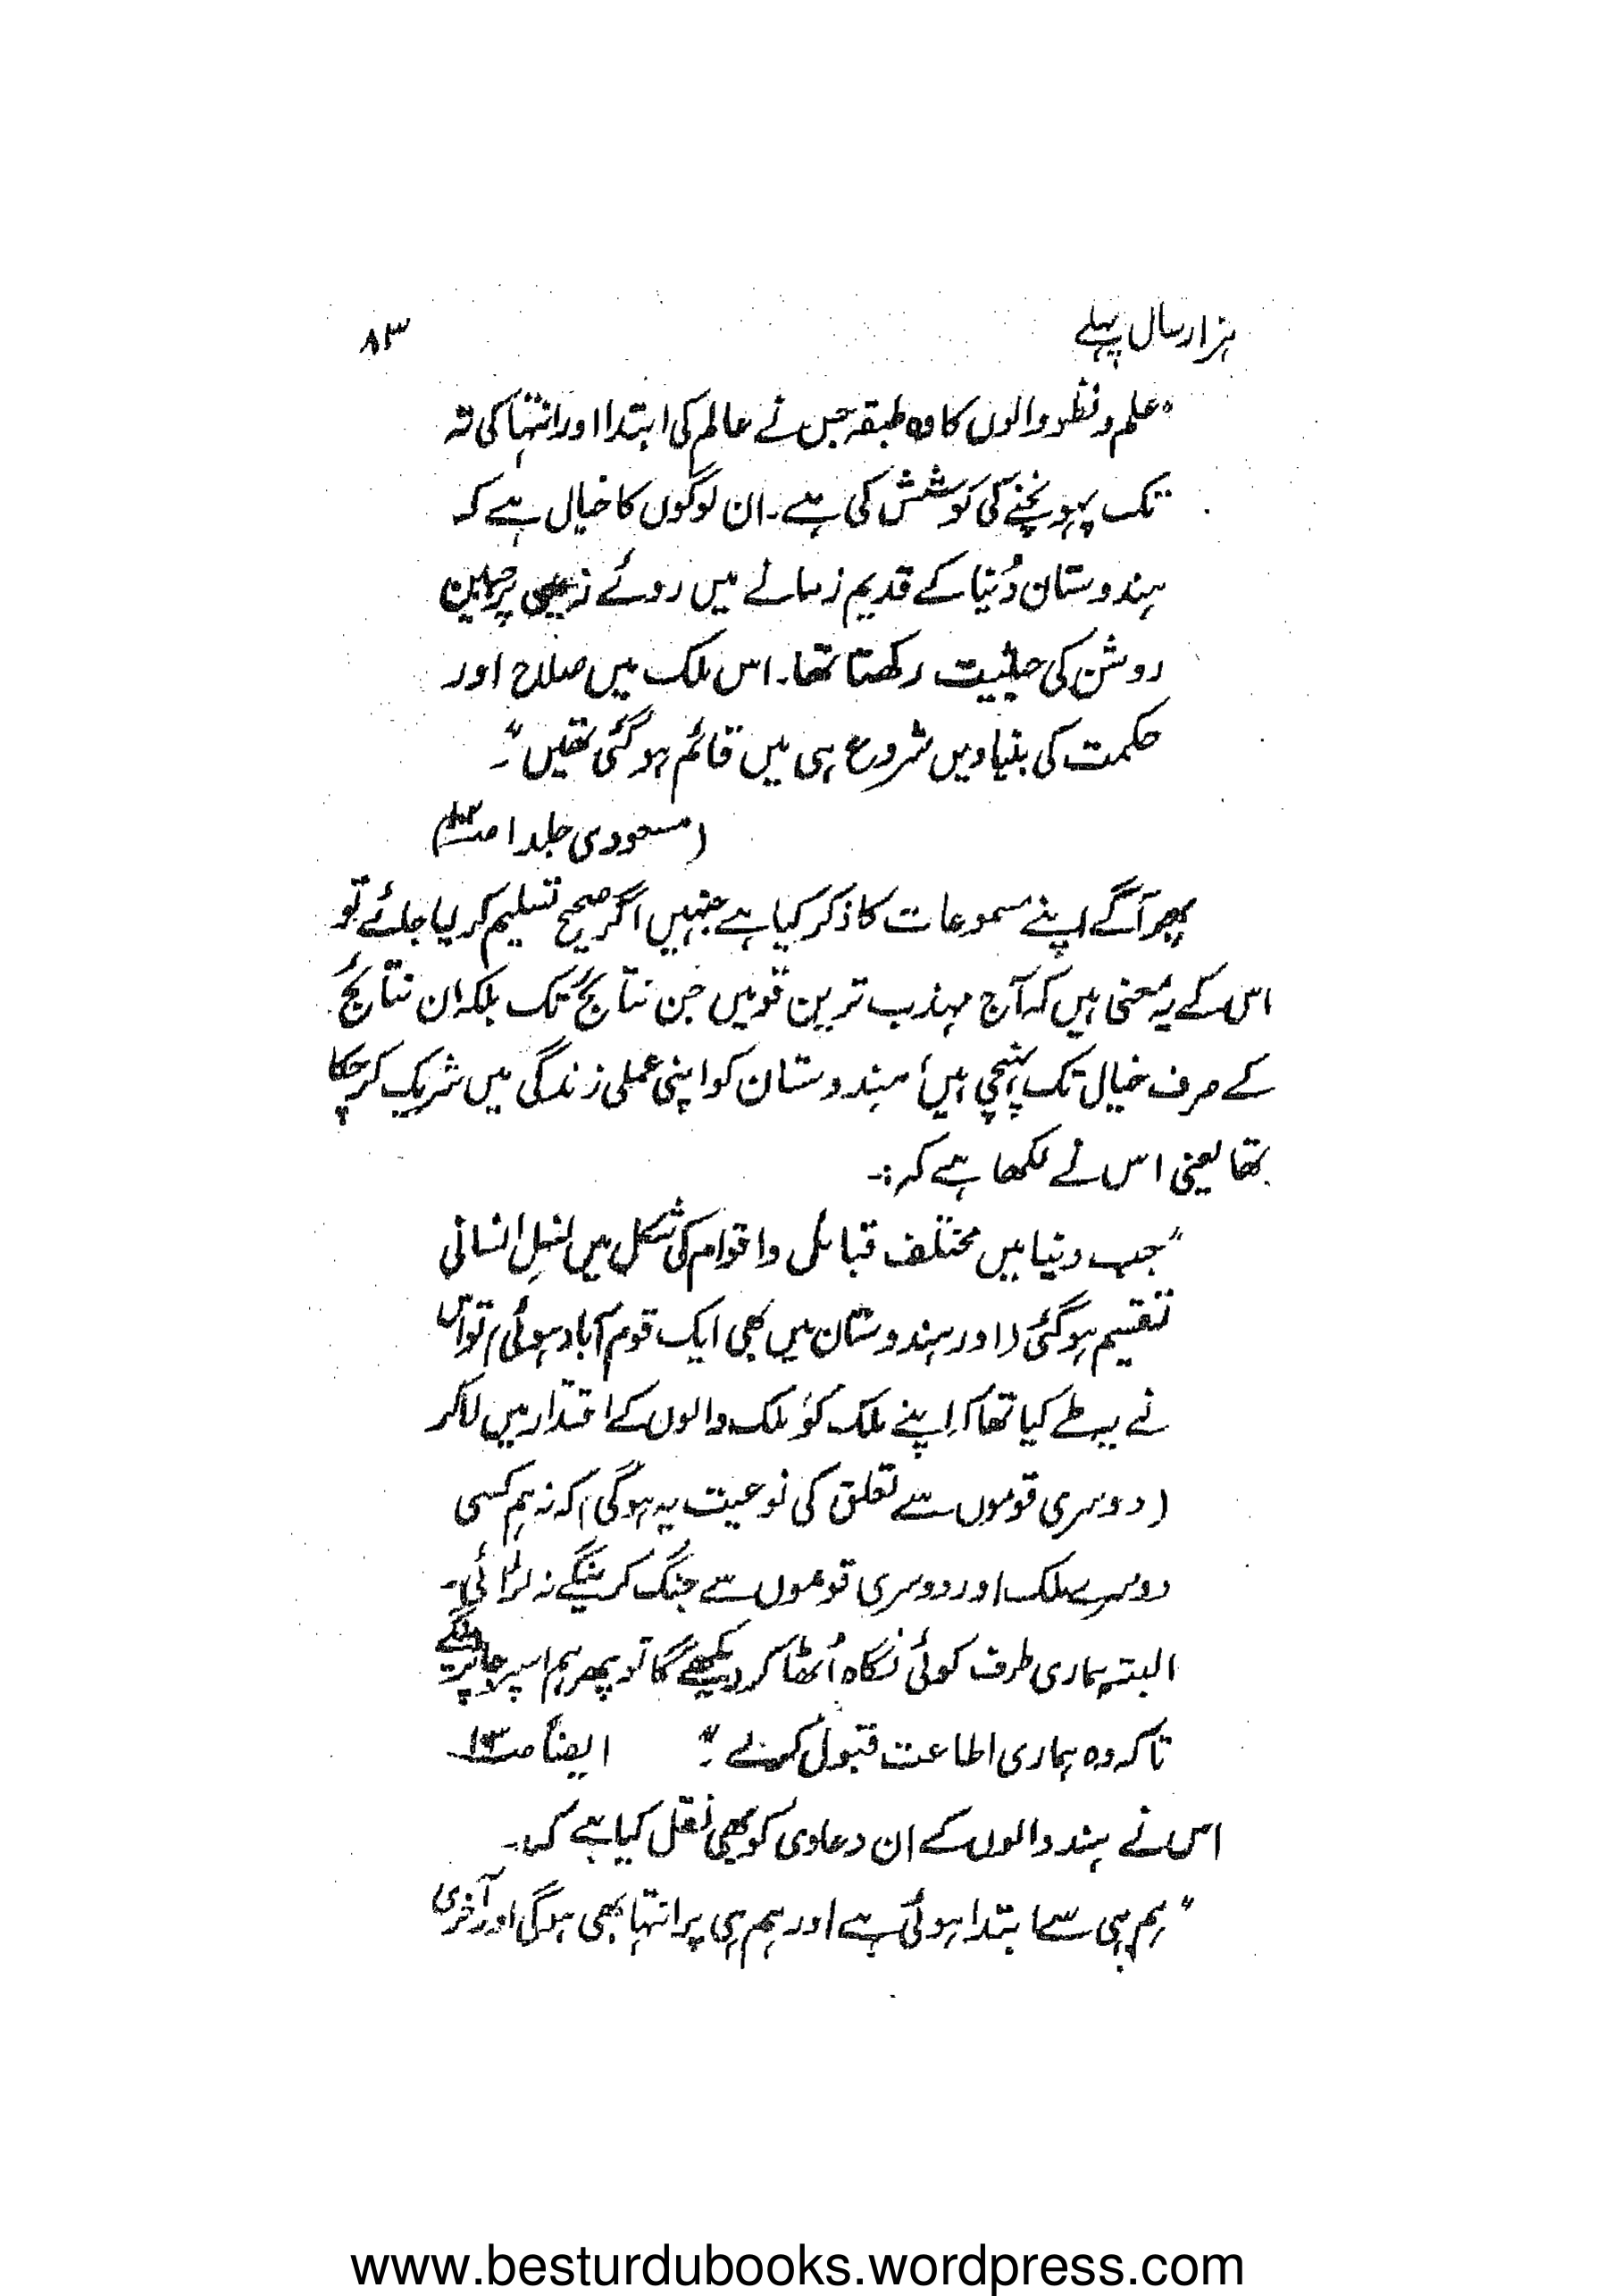 ہزار سال پہلے ۸۳
"علم و نظر والوں کا وہ طبقہ جس نے عالم کی ابتدا اور انتہا کی تہ
تک پہونچنے کی کوشش کی ہے۔ ان لوگوں کا خیال ہے کہ
ہندوستان دُنیا کے قدیم زمانے میں روئے زمین پر جبین
روشن کی حیثیت رکھتا تھا۔ اس ملک میں صلاح اور
حکمت کی بنیادیں شروع ہی میں قائم ہو گئی تھیں"۔
(مسعودی جلد ۱
پھر آگے اپنے مسموعات کا ذکر کیا ہے جنہیں اگر صحیح تسلیم کر لیا جائے تو
اس کے یہ معنی ہیں کہ آج مہذب ترین قومیں جن نتائج تک بلکہ ان نتائج
کے صرف خیال تک پہنچی ہیں، ہندوستان کو اپنی عملی زندگی میں شریک کر چکا
تھا یعنی اس نے لکھا ہے کہ :۔
"جب دنیا میں مختلف قبائل و اقوام کی شکل میں نسلِ انسانی
تقسیم ہو گئی (اور ہندوستان میں بھی ایک قوم آباد ہوئی) تو اس
نے یہ طے کیا تھا کہ اپنے ملک کو ملک والوں کے اقتدار میں لاکر
(دوسری قوموں سے تعلق کی نوعیت یہ ہوگی) کہ نہ ہم کسی
دوسرے ملک اور دوسری قوموں سے جنگ کرینگے نہ لڑائی۔
البتہ ہماری طرف کوئی نگاہ اُٹھا کر دیکھے گا تو پھر ہم اسپر جا پڑینگے
تاکہ وہ ہماری اطاعت قبول کرلے"۔ ایضاً ص۱۳
اس نے ہند والوں کے ان دعاوی کو بھی نقل کیا ہے کہ۔
"ہم ہی سے ابتدا ہوئی ہے اور ہم ہی پر انتہا بھی ہوگی اور آخری
www.besturdubooks.wordpress.com